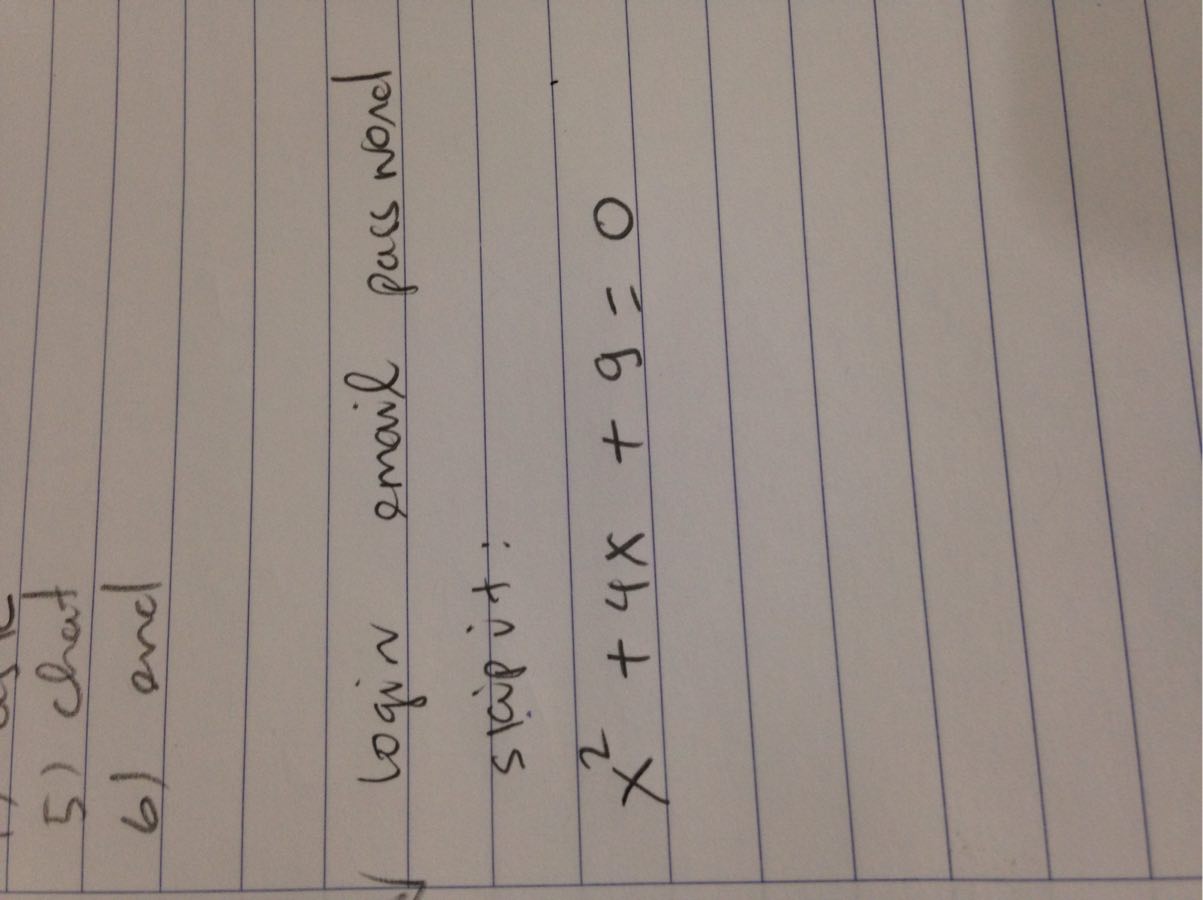 5) chat
6) end
login email password
skip it:
x² + 4x + 9 = 0